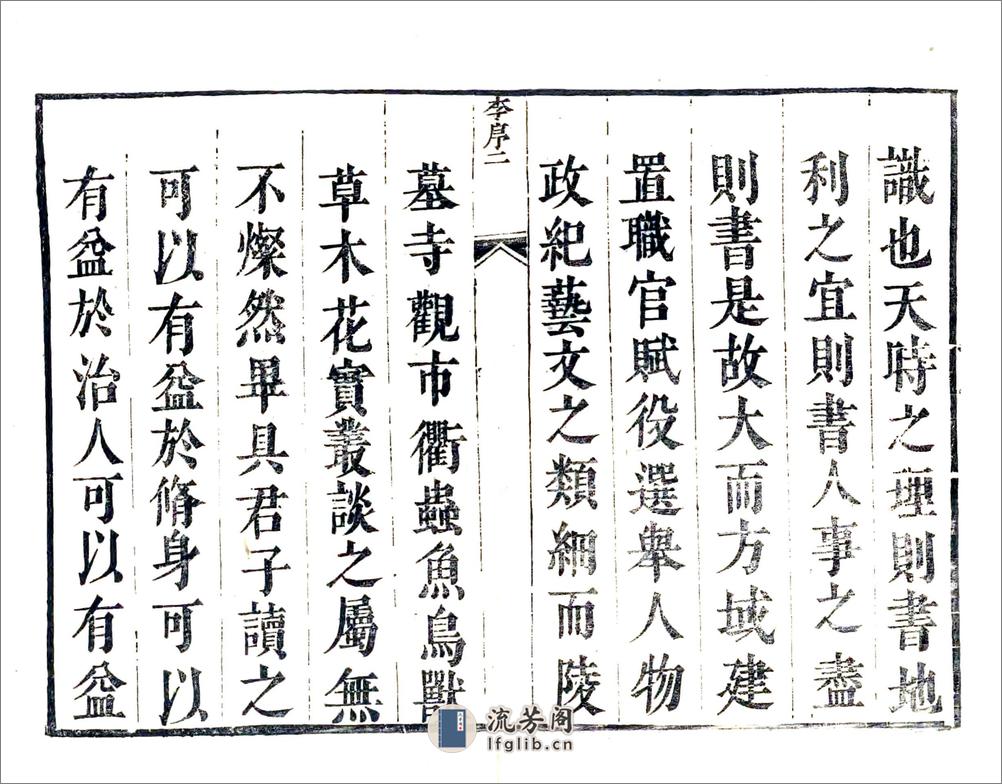 識也天時之理則書地
利之宜則書人事之盡
則書是故大而方域建
置職官賦役選舉人物
政紀藝文之類細而陵
李序二
墓寺觀市衢蟲魚鳥獸
草木花實叢談之屬無
不燦然畢具君子讀之
可以有益於脩身可以
有益於治人可以有益
流芳阁
lfglib.cn